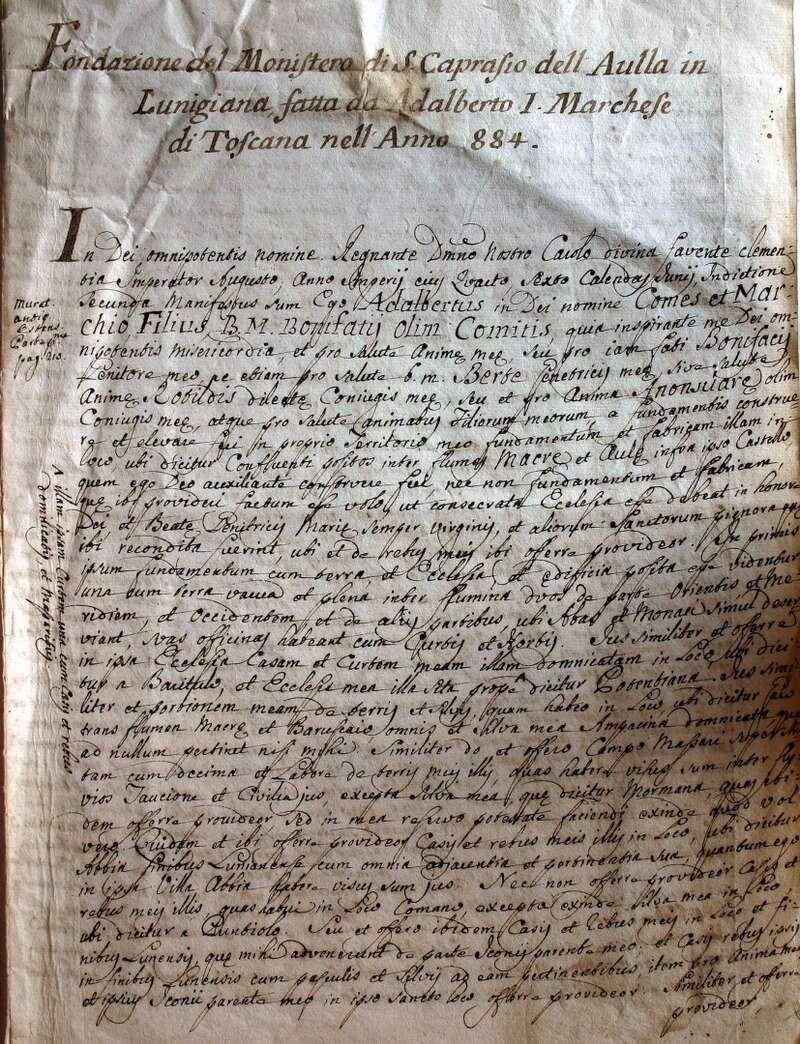 Fondazione del Monistero di S. Caprasio dell Aulla in
Lunigiana fatta da Adalberto I. Marchese
di Toscana nell Anno 884.
In Dei omnipotentis nomine. Regnante Dmno Nostro Carolo divina favente clemen-
tia Imperator Augusto, Anno Imperij eius Quarto Sexto Calendas Junij, Indictione
Secunda Manifestus sum Ego Adalbertus in Dei nomine Comes et Mar-
chio, Filius, B. M. Bonifatij olim Comitis, quia inspirante me Dei om-
nipotentis misericordia, et pro Salute Anime meę, Seu pro iam fati Bonifacij
Genitore meo, et etiam pro Salute b. m. Berte Genetricis meę, Sive Salute
Anime Rotildis dilecte Coniugis meę, seu et pro Anima Anonsuare olim
Coniugis meę, atque pro Salute animabus Filiorum meorum, a fundamentis construe-
re et elevare feci in proprio Territorio meo fundamentum et fabricam illam in
loco, ubi dicitur Confluenti positos inter flumen Macre et Aulę infra ipso Castello
quem ego Deo auxiliante construere feci, nec non fundamentum et fabricam,
que ibi providi factum esse volo, ut consecrata Ecclesia esse debeat in honore
Dei, et Beate Genitricis Marie Semper Virginis, et aliorum Sanctorum pignora que
ibi recondita fuerint, ubi et de rebus meis ibi offerre provideor. In primis
ipsum fundamentum cum terra et Ecclesia, et edificia posita esse videntur
una cum terra vacua et plena inter flumina duos de parte Orientis et Me
ridiem, et Occidentem, et de alijs partibus, ubi Abas et Monaci simul deser
viant, suas officinas habeant cum Curtis et Hortis. similiter et offerre
in ipsa Ecclesia Casam et Curtem meam illam domnicatam in Loco, ubi dici
tur a et Ecclesia mea illa sita prope dicitur simi
liter et portionem meam de terris et silvis, quam habeo in Loco, ubi dicitur
trans flumen Macre et omnis et Silva mea domnicata que
ad nullum pertinet nisi mihi. Similiter do et offero Campo Massari
tam cum decima et Labore de terris meis illis, quas habere visus sum inter flu
vios Taucione et Civilia jus excepta Silva mea, que dicitur Mormana, quas ibi-
dem offerre provideor, sed in mea reservo potestate faciendi exinde quod vol
vero. Quidem et ibi offerre provideor Casis et rebus meis illis in Loco, ubi dicitur
Abbia finibus Lunianense cum omnia adjacentia et pertinentia sua, quantum ego
in ipsa Villa Abbia habere visus sum jus. Nec non offerre provideor Casis et
rebus meis illis, quas habui in Loco Comano, excepta exinde Silva mea in Loco,
ubi dicitur a Seu et offero ibidem Casis et rebus meis in Loco et fi-
nibus Lunensis, que mihi advenerunt de parte Iconij parente meo: et Casis rebus ipsis
in finibus Lunensis cum pasculis et silvis ad eam pertinentibus, item pro Anima mea
et ipsius Iconij parente meo in ipso Sancto loco offerre provideor. Similiter et offerre
provideor
Murat.
antiq.
Estens.
pag. 210.
A illam ipsam Curtem una cum Casis et rebus
domnicatis, et Massaritijs